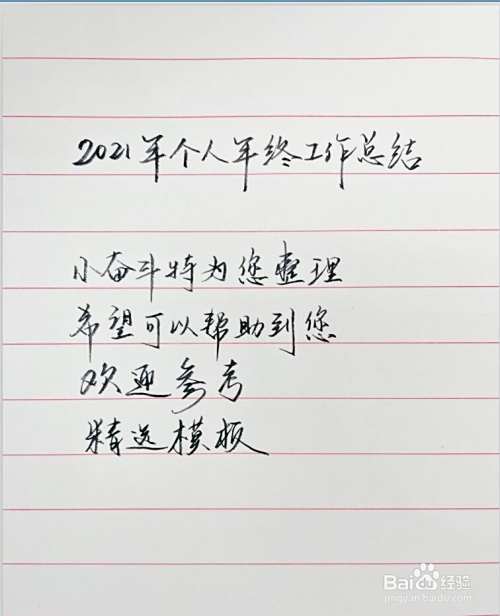 2021年个人年终工作总结
小奋斗特为您整理
希望可以帮助到您
欢迎参考
精选模板
Baidu经验
jingyan.baidu.com